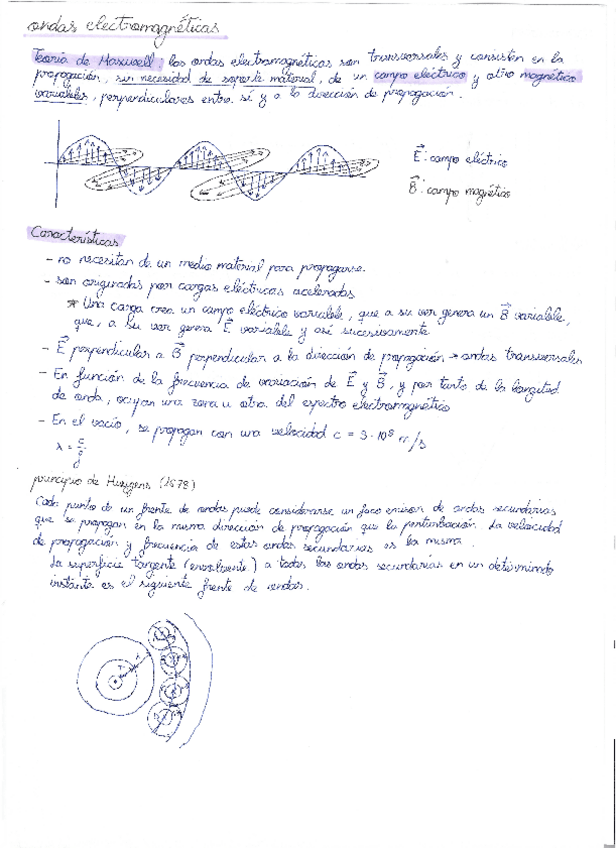 ondas electromagnéticas
Teoría de Maxwell: las ondas electromagnéticas son transversales y consisten en la
propagación, sin necesidad de soporte material, de un campo eléctrico y otro magnético
variables, perpendiculares entre sí y a la dirección de propagación.
E⃗: campo eléctrico
B⃗: campo magnético
Características
- no necesitan de un medio material para propagarse.
- son originadas por cargas eléctricas aceleradas
* Una carga crea un campo eléctrico variable, que a su vez genera un B⃗ variable,
que, a su vez genera E⃗ variable y así sucesivamente
- E⃗ perpendicular a B⃗ perpendicular a la dirección de propagación → ondas transversales
- En función de la frecuencia de variación de E⃗ y B⃗, y por tanto de la longitud
de onda, ocupan una zona u otra del espectro electromagnético
- En el vacío, se propagan con una velocidad c = 3·10⁸ m/s
λ = c/f
principio de Huygens (1678)
Cada punto de un frente de ondas puede considerarse un foco emisor de ondas secundarias
que se propagan en la misma dirección de propagación que la perturbación. La velocidad
de propagación y frecuencia de estas ondas secundarias es la misma.
La superficie tangente (envolvente) a todas las ondas secundarias en un determinado
instante es el siguiente frente de ondas.